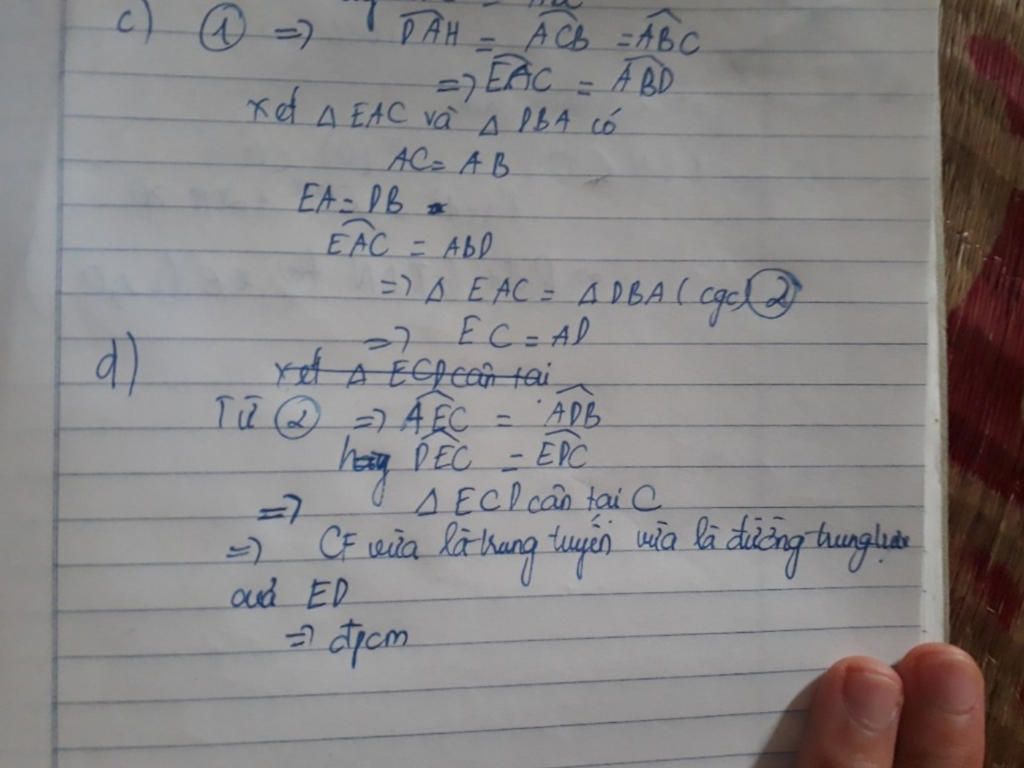 c) ① => DAH = ACB = ABC
=> EAC = ABD
xét Δ EAC và Δ DBA có
AC = AB
EA = DB
EAC = ABD
=> Δ EAC = Δ DBA (cgc) ②
=> EC = AD
d) xét Δ ECD cân tại
Từ ② => AEC = ADB
hay DEC = EDC
=> Δ ECD cân tại C
=> CF vừa là trung tuyến vừa là đường trung trực
của ED
=> đpcm